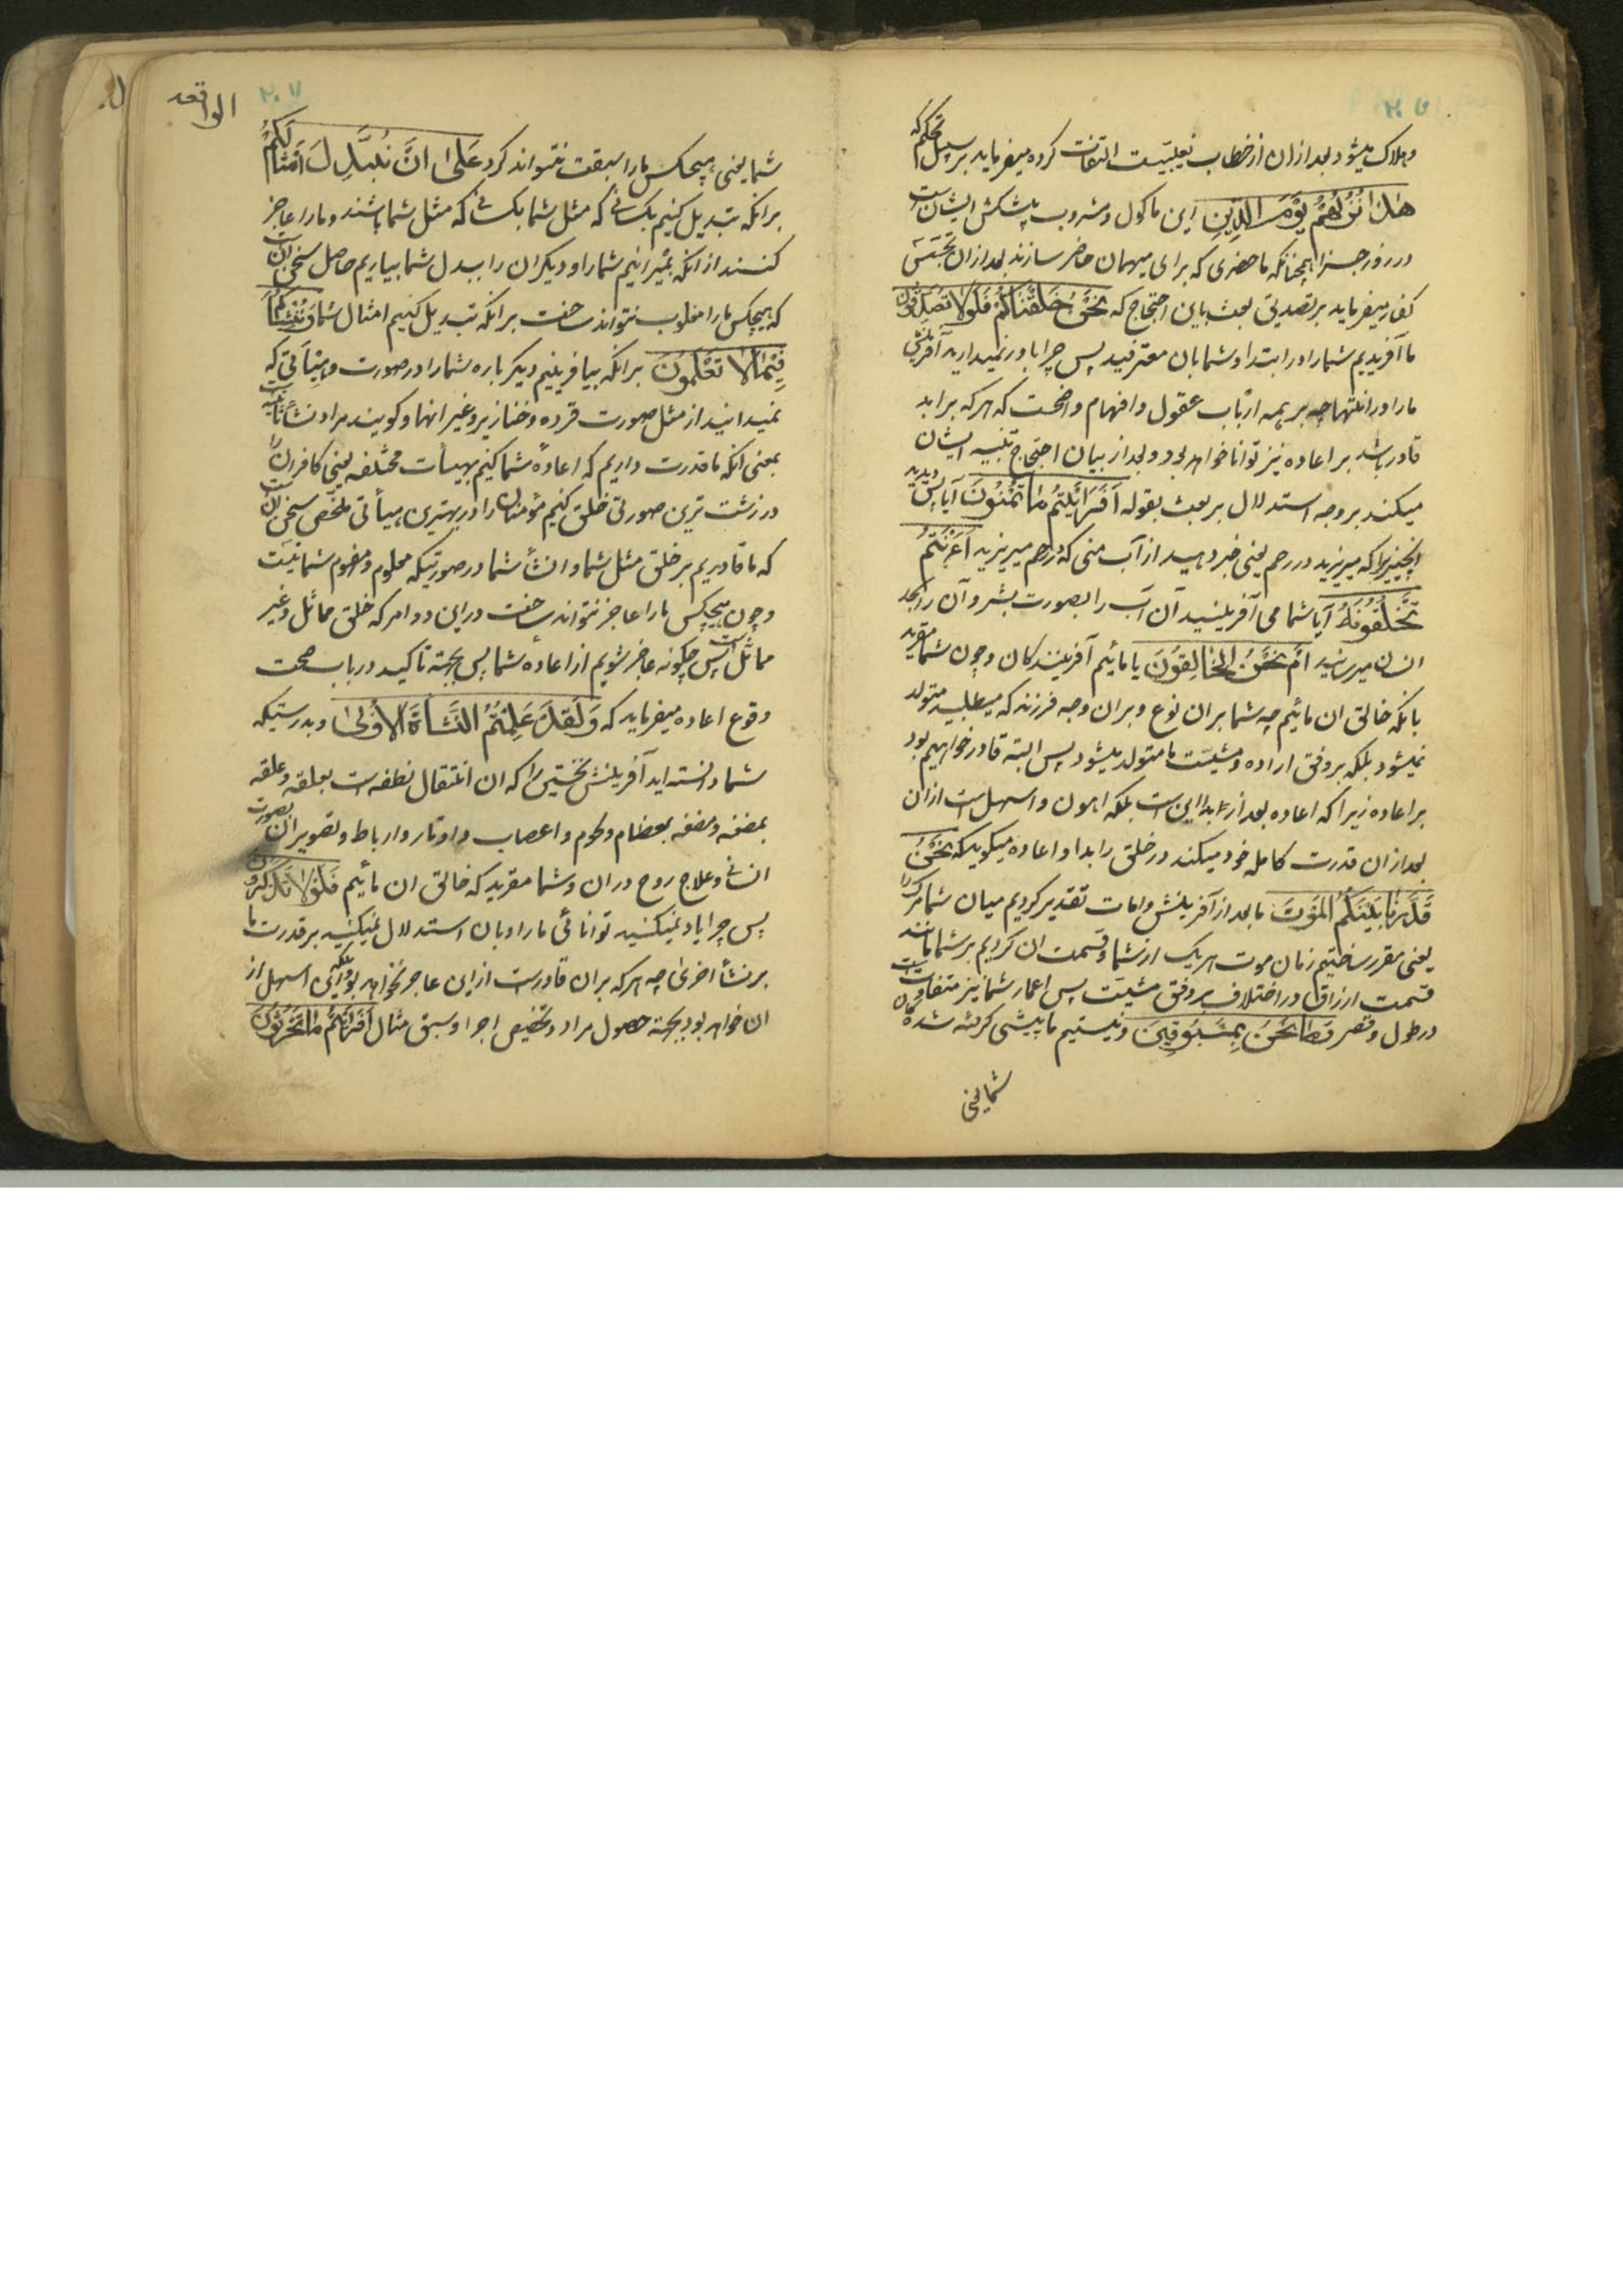 وهلاک میشود بعد ازان از خطاب بغیبیت التفات کرده میفرماید بر سبیل تحکم که
هٰذَا نُزُلُهُمْ یَوْمَ الدِّینِ این ماکول ومشروب پیشکش ایشان است
در روز جزا همچنانکه ماحضری که برای میهمان حاضر سازند بعد ازان بجهت
کفار میفرماید بر تصدیق بعث باین احتجاج که نَحْنُ خَلَقْنَاکُمْ فَلَوْلَا تُصَدِّقُونَ
ما آفریدیم شمارا در ابتدا وشما بان معترفید پس چرا باور نمیدارید آفرینش
مارا در انتها چه بر همه ارباب عقول وافهام واضحست که هر که بر ابدا
قادر باشد بر اعاده نیز توانا خواهد بود وبعد از بیان احتجاج تنبیه ایشان
میکند بر وجه استدلال بر بعث بقوله اَفَرَاَیْتُمْ مَا تُمْنُونَ آیا پس دیدید
انچیزیرا که میریزید در رحم یعنی خبر دهید از آب منی که در رحم میریزید ءَاَنْتُمْ
تَخْلُقُونَهُ آیا شما می آفرینید آن آب را بصورت بشر وآن را بحد
انسان میرسانید اَمْ نَحْنُ الْخَالِقُونَ یا مائیم آفرینندکان وچون شما مقرید
بانکه خالق ان مائیم چه شما بران نوع وبران وجه فرزند که میطلبید متولد
نمیشود بلکه بر وفق اراده ومشیت ما متولد میشود پس البته قادر خواهیم بود
بر اعاده زیرا که اعاده بعد از ابداایی است بلکه اهون واسهل است ازان
بعد ازان قدرت کامله خود میکند در خلق را ابدا واعاده میکوید که نَحْنُ
قَدَّرْنَا بَیْنَکُمُ الْمَوْتَ ما بعد از آفرینش وامات تقدیر کردیم میان شما مرک را
یعنی مقرر ساختیم زمان موت هر یک از شما وقسمت ان کردیم بر شما مانند
قسمت ارزاق در اختلاف بر وفق مشیت پس اعمار شما نیز متفاوتست
در طول وقصر وَمَا نَحْنُ بِمَسْبُوقِینَ ونیستیم ما پیشی کرفته شده
شما یعنی
۲۰۷
الواقعه
شما یعنی هیچکس مارا سبقت نتواند کرد عَلیٰ اَنْ نُبَدِّلَ اَمْثَالَکُمْ
برانکه تبدیل کنیم بکسانی که مثل شما بکسانی که مثل شما باشند ومارا عاجز
کنند از انکه بمیرانیم شمارا ودیکران را ببدل شما بیاریم حاصل سخن انست
که هیچکس مارا مغلوب نتواند ساخت برانکه تبدیل کنیم امثال شما وَنُنْشِئَکُمْ
فِیْمَا لَا تَعْلَمُونَ برانکه بیافرینیم دیکر باره شمارا در صورت وهیأتی که
نمیدانید از مثل صورت قرده وخنازیر وغیر انها وکویند مراد نشأة ثانیه است
بمعنی انکه ما قدرت داریم که اعادهٔ شما کنیم بهیأت مختلفه یعنی کافران را
در زشت ترین صورتی خلق کنیم مؤمنان را در بهترین هیأتی ملخص سخن انست
که ما قادریم بر خلق مثل شما وانشأ شما در صورتیکه معلوم ومفهوم شما نیست
وچون هیچکس مارا عاجز نتواند ساخت دراین دو امر که خلق مماثل وغیر
مماثل است پس چکونه عاجز شویم از اعاده شما پس بجهة تاکید در باب صحت
وقوع اعاده میفرماید که وَلَقَدْ عَلِمْتُمُ النَّشْأَةَ الْأُولیٰ وبدرستیکه
شما دانسته اید آفرینش نخستین را که ان انتقال نطفه است بعلقه وعلقه
بمضغه ومضغه بعظام ولحوم واعصاب واوتار وارباط وتصویر ان بصورت
انسانی وعلاج روح دران وشما مقرید که خالق ان مائیم فَلَوْلَا تَذَکَّرُونَ
پس چرا یاد نمیکنید توانائی مارا وبان استدلال نمیکنید بر قدرت ما
بر نشأ اخری چه هر که بران قادر است ازاین عاجز نخواهد بود بلکه این اسهل از
ان خواهد بود بجهة حصول مراد وتخصیص اجزا وسبق مثال اَفَرَاَیْتُمْ مَا تَحْرُثُونَ